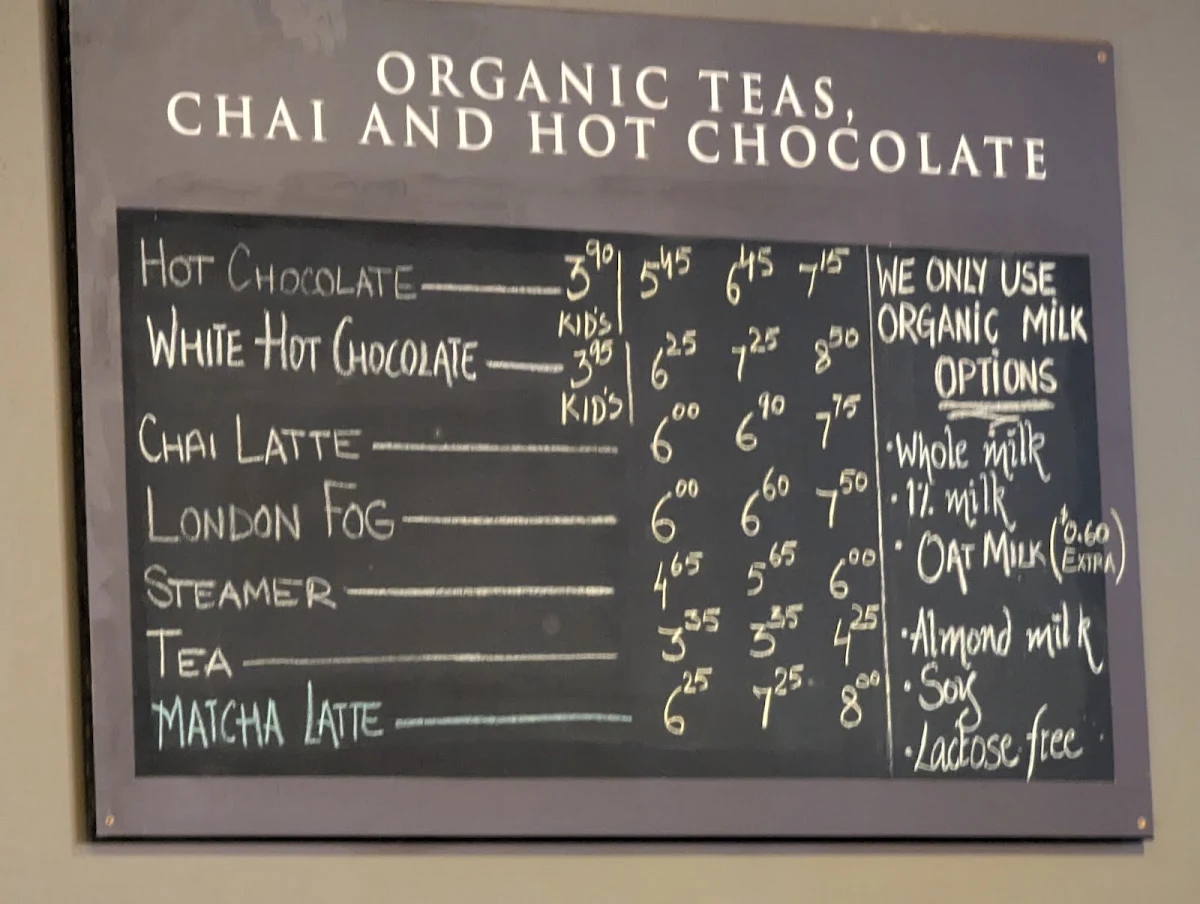 ORGANIC TEAS,
CHAI AND HOT CHOCOLATE
HOT CHOCOLATE 3.90 5.45 6.45 7.15
KID'S
WHITE HOT CHOCOLATE 3.95 6.25 7.25 8.50
KID'S
CHAI LATTE 6.00 6.90 7.75
LONDON FOG 6.00 6.60 7.50
STEAMER 4.65 5.65 6.00
TEA 3.35 3.35 4.25
MATCHA LATTE 6.25 7.25 8.00
WE ONLY USE
ORGANIC MILK
OPTIONS
·Whole milk
·1% milk
·OAT MILK ($0.60
EXTRA)
·Almond milk
·Soy
·Lactose free